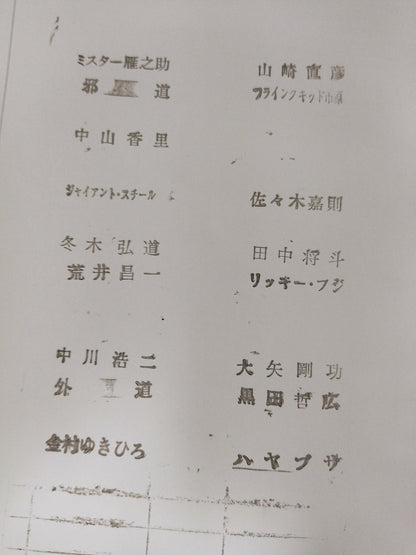 ミスター雁之助
邪道
中山香里
ジャイアント・スチール
冬木弘道
荒井昌一
中川浩二
外道
金村ゆきひろ
山崎直彦
フライングキッド市原
佐々木嘉則
田中将斗
リッキー・フジ
大矢剛功
黒田哲広
ハヤブサ